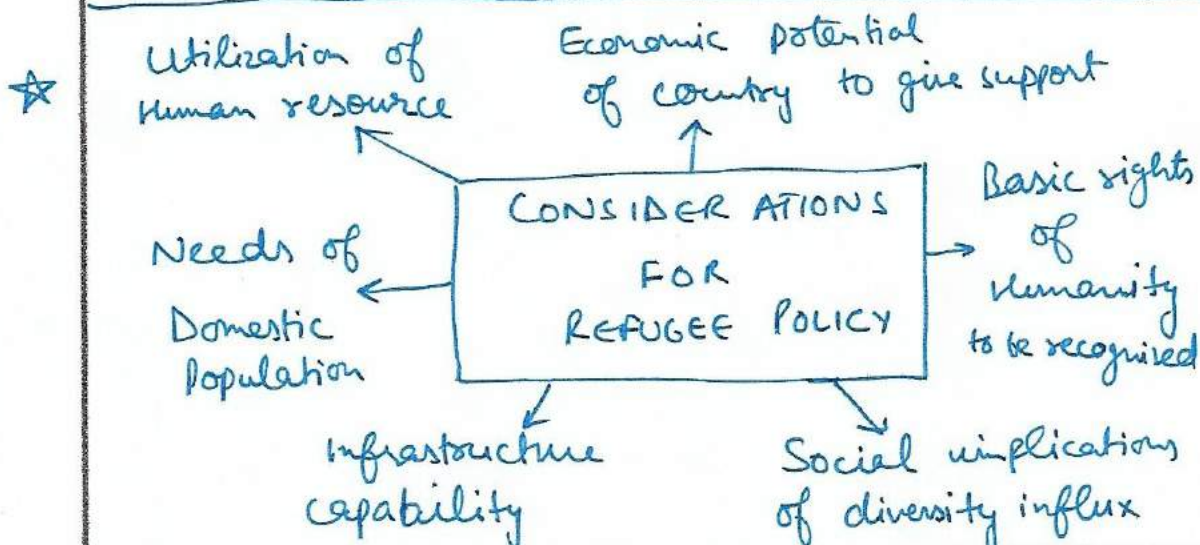 Utilization of
Human resource
Economic potential
of country to give support
CONSIDERATIONS
FOR
REFUGEE POLICY
Basic rights
of
Humanity
to be recognised
Needs of
Domestic
Population
Infrastructure
capability
Social implications
of diversity influx